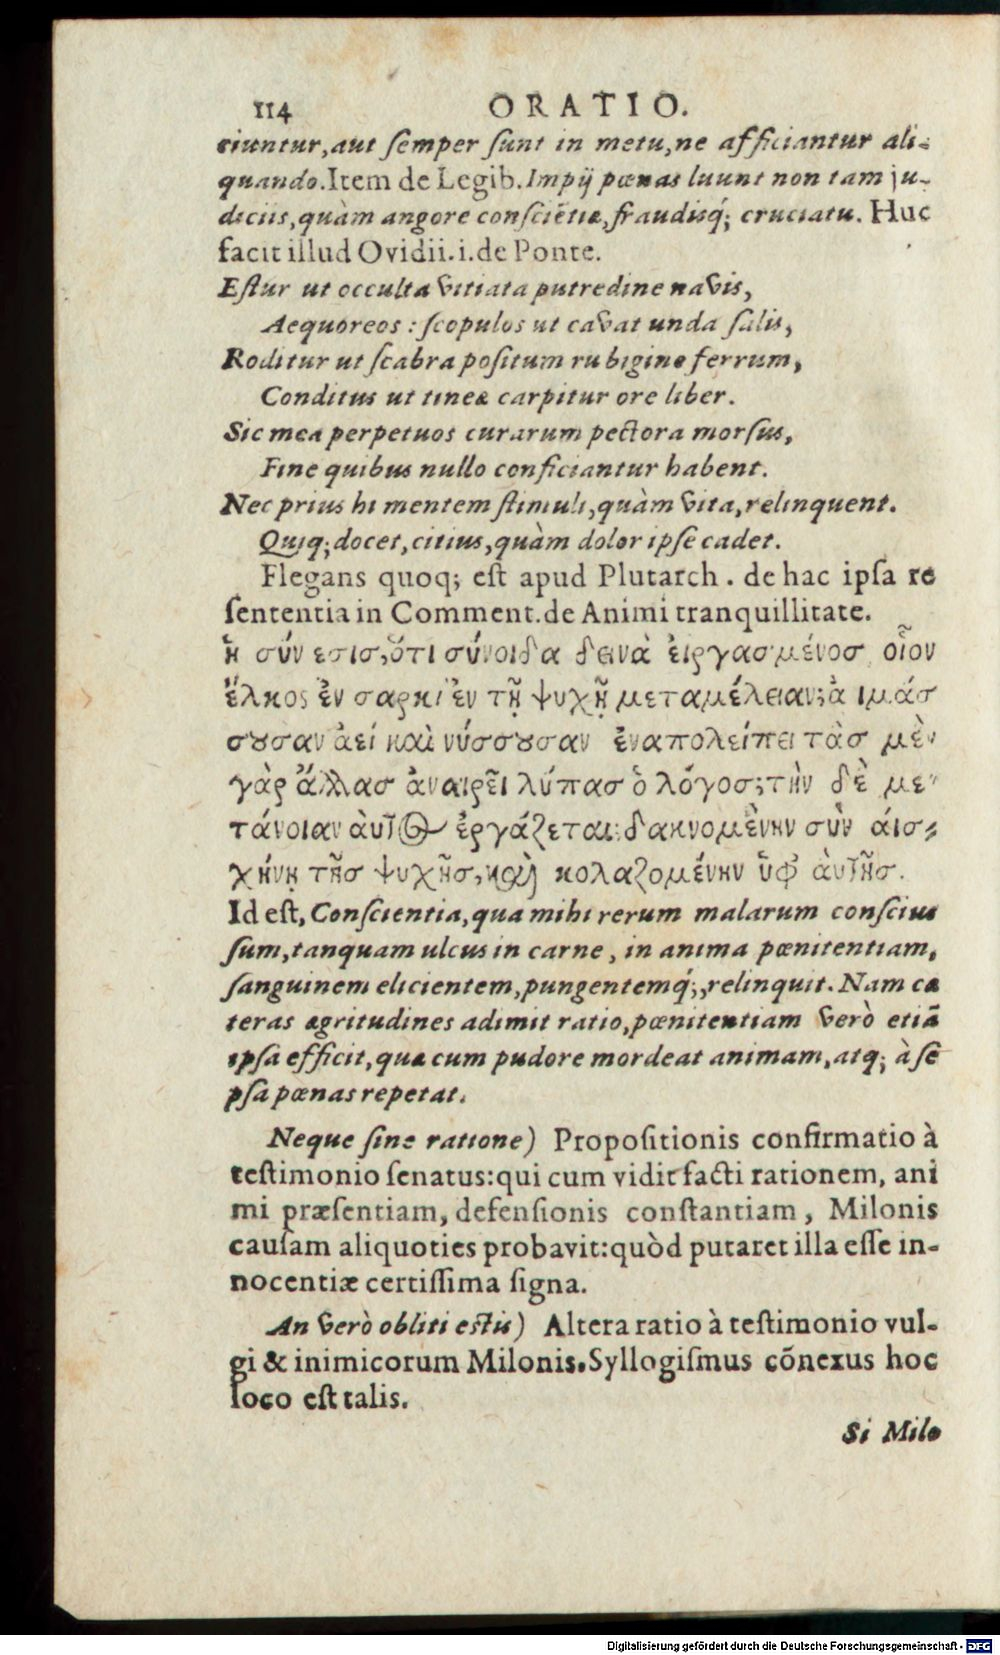 114 ORATIO.
ciuntur, aut semper sunt in metu, ne afficiantur ali-
quando. Item de Legib. Impij pœnas luunt non tam ju-
diciis, quàm angore consciẽtiæ, fraudisq́; cruciatu. Huc
facit illud Ovidii. i. de Ponte.
Estur ut occulta vitiata putredine navis,
Aequoreos : scopulos ut cavat unda salis,
Roditur ut scabra positum rubigine ferrum,
Conditus ut tineæ carpitur ore liber.
Sic mea perpetuos curarum pectora morsus,
Fine quibus nullo conficiantur habent.
Nec prius hi mentem stimuli, quàm vita, relinquent.
Quiq; docet, citius, quàm dolor ipse cadet.
Elegans quoq; est apud Plutarch. de hac ipsa re
sententia in Comment. de Animi tranquillitate.
ἣ σύν εσισ, ὅτι σύνοιδα δεινὰ ἐιργασμένοσ, οἷον
ἕλκος ἐν σαρκὶ ἐν τῇ ψυχῇ μεταμέλειαν; ἁ ιμάσ
σουσαν ἀεί καὶ νύσσουσαν ἐναπολείπει τὰσ μὲν
γὰρ ἄλλασ ἀναιρεῖ λύπασ ὁ λόγοσ; τὴν δὲ με-
τάνοιαν ἀυτὸς ἐργάζεται: δακνομένην σὺν άισ-
χήνῃ τῆσ ψυχῆσ, καὶ κολαζομένην ὑφ' ἀυτῆσ.
Id est, Conscientia, qua mihi rerum malarum conscius
sum, tanquam ulcus in carne, in anima pœnitentiam,
sanguinem elicientem, pungentemq́;, relinquit. Nam cæ
teras ægritudines adimit ratio, pœnitentiam verò etiã
ipsa efficit, quæ cum pudore mordeat animam, atq; à se
psa pœnas repetat.
Neque sine ratione) Propositionis confirmatio à
testimonio senatus: qui cum vidit facti rationem, ani
mi præsentiam, defensionis constantiam, Milonis
causam aliquoties probavit: quòd putaret illa esse in-
nocentiæ certissima signa.
An verò obliti estis) Altera ratio à testimonio vul-
gi & inimicorum Milonis. Syllogismus cõnexus hoc
loco est talis.
Si Milo
Digitalisierung gefördert durch die Deutsche Forschungsgemeinschaft - DFG